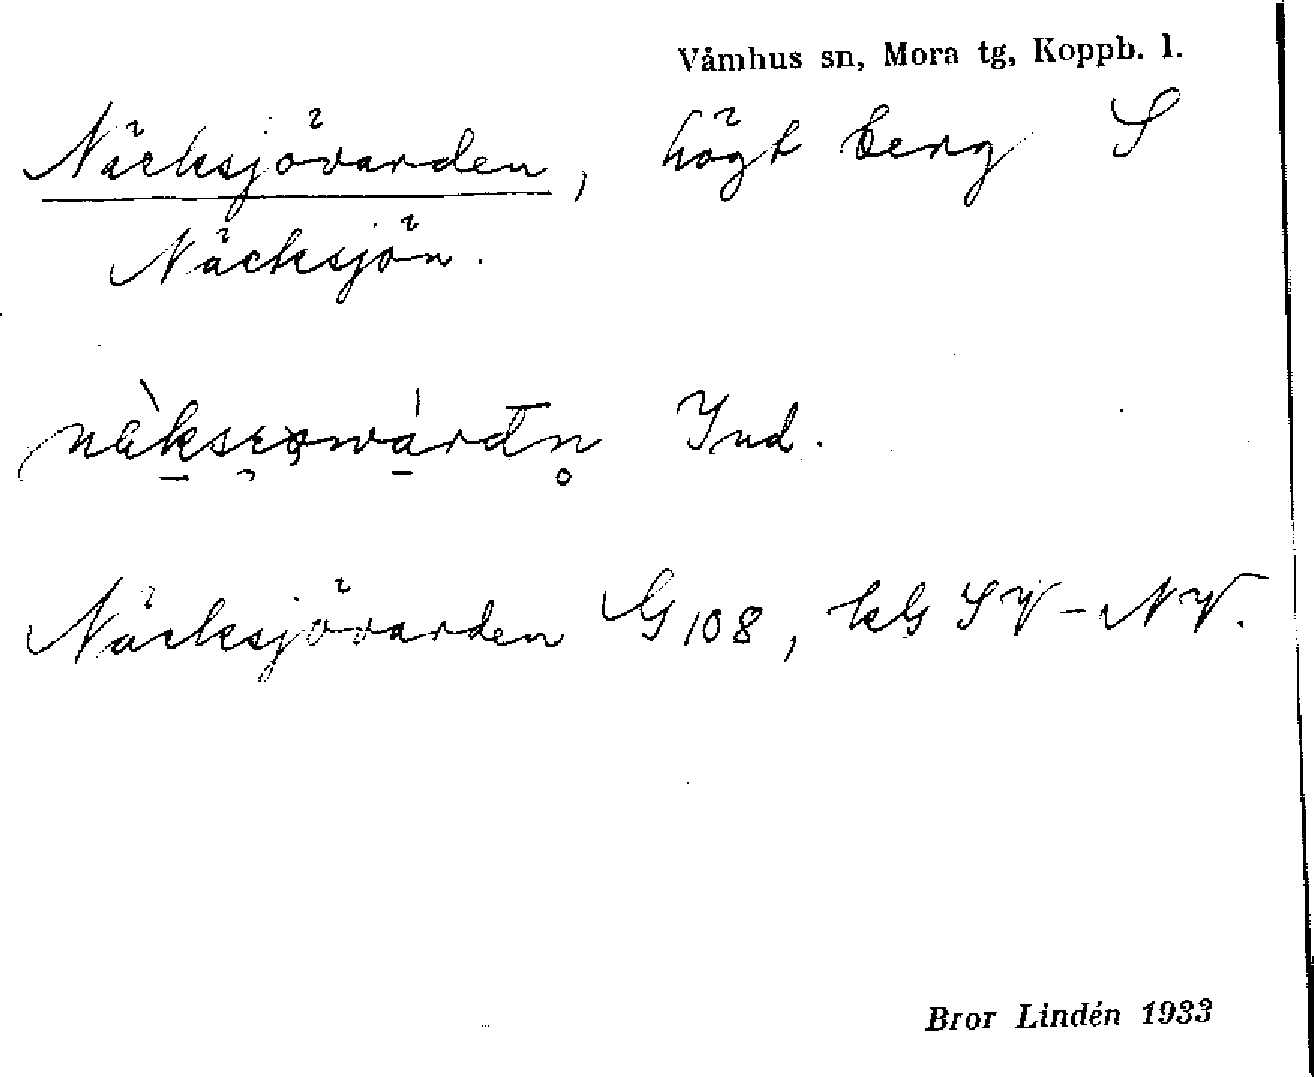 Våmhus sn, Mora tg, Koppb. l.
Näcksjövarden, högt berg S
Näcksjön.
Ind.
Näcksjövarden G 108, kbl SV-NV.
Bror Lindén 1933